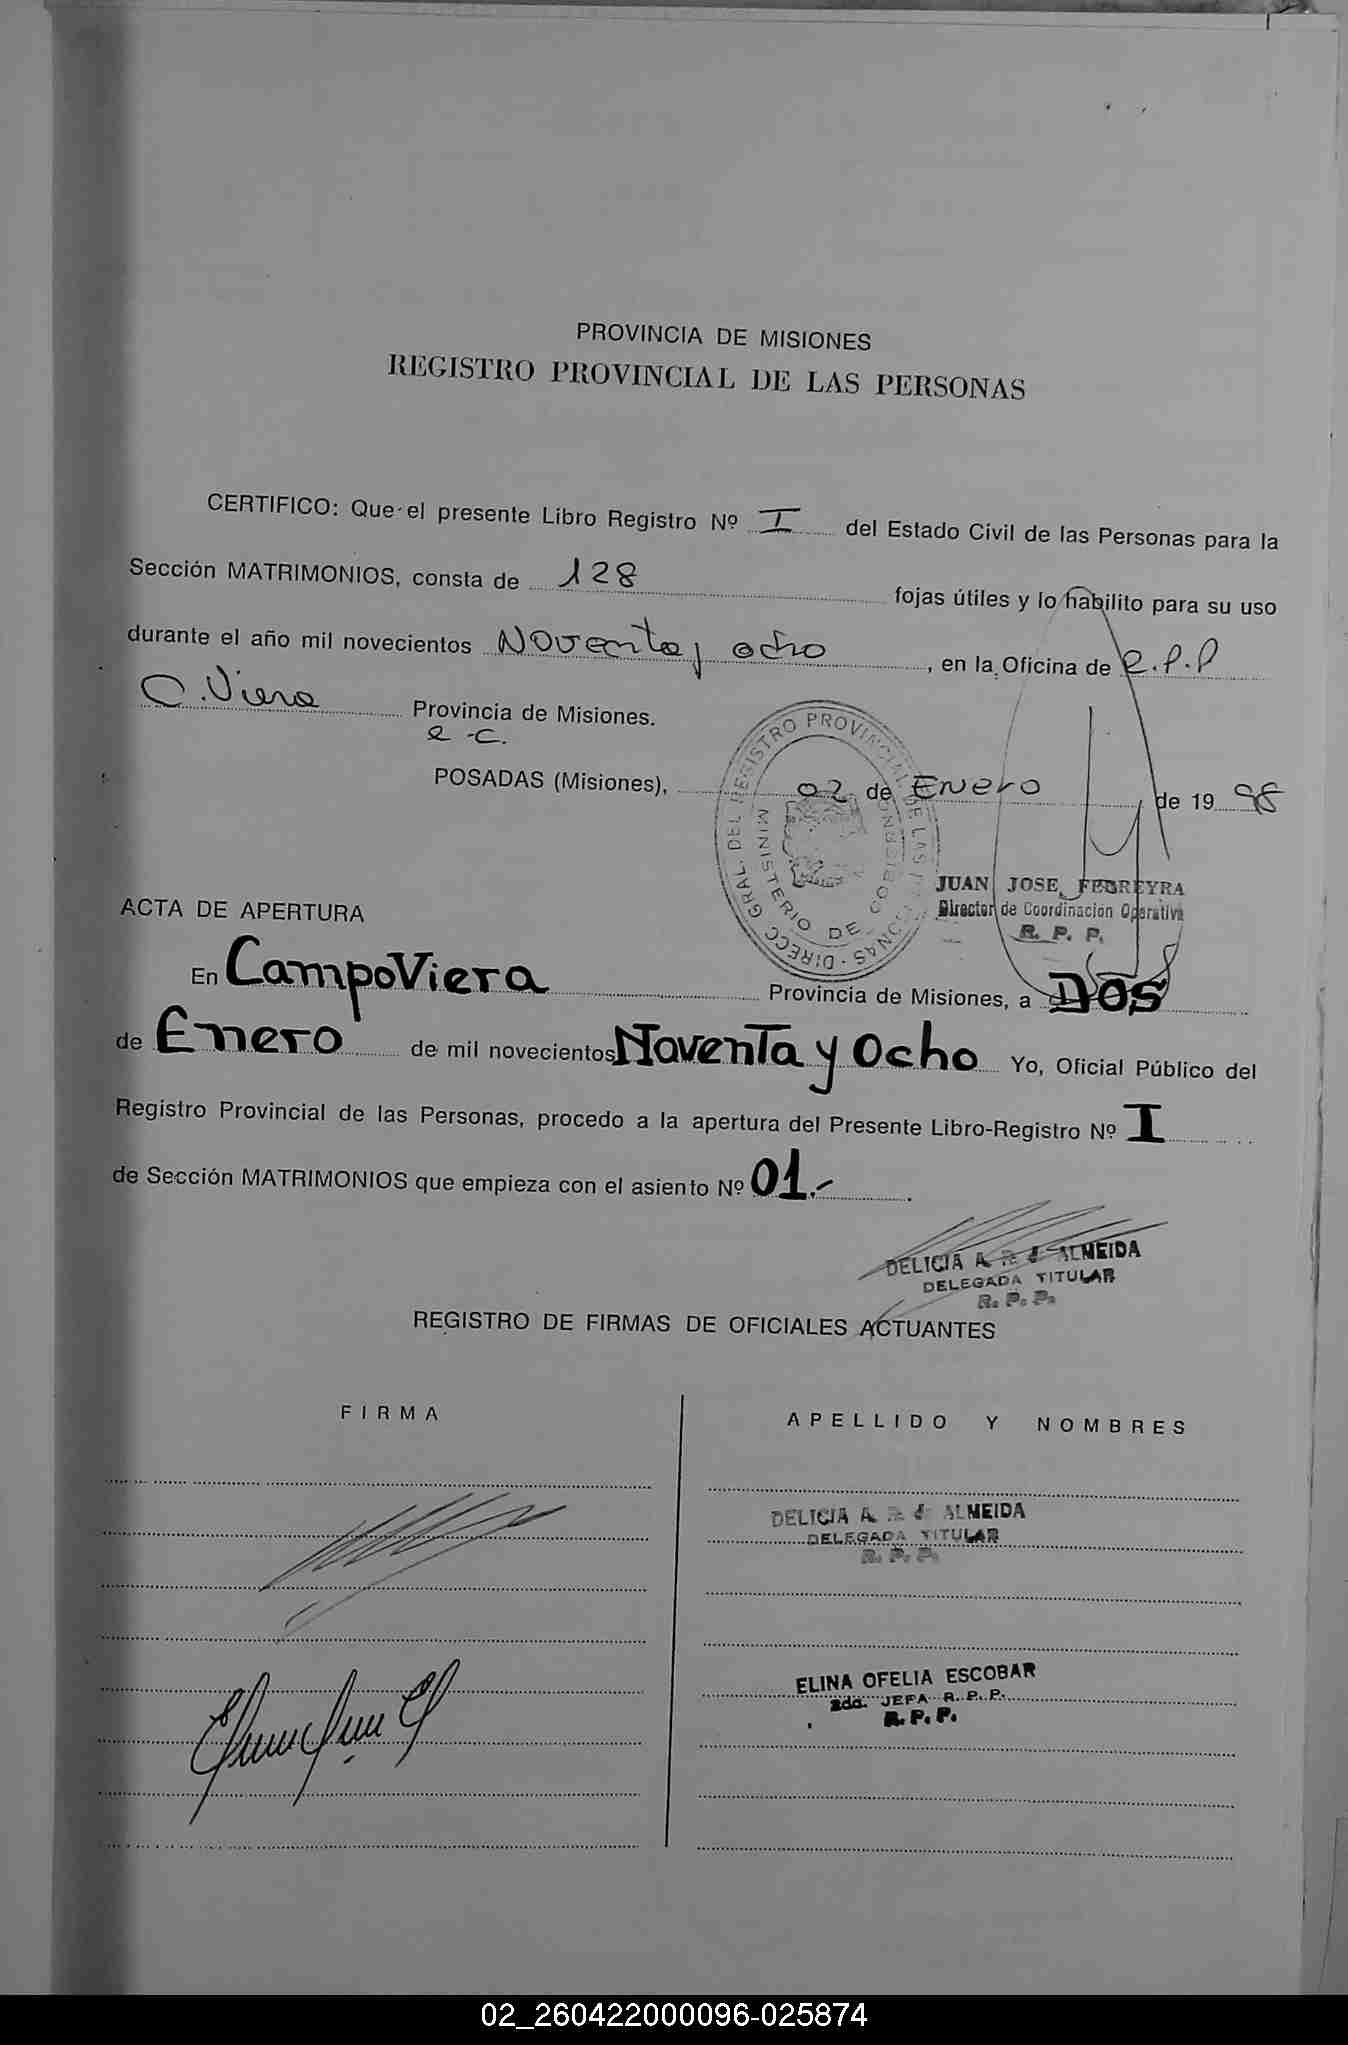 PROVINCIA DE MISIONES
REGISTRO PROVINCIAL DE LAS PERSONAS
CERTIFICO: Que el presente Libro Registro Nº I del Estado Civil de las Personas para la
Sección MATRIMONIOS, consta de 128 fojas útiles y lo habilito para su uso
durante el año mil novecientos Noventa y ocho, en la Oficina de R.P.P
C. Viera Provincia de Misiones.
R-C.
POSADAS (Misiones), 02 de Enero de 19 98
DIRECC. GRAL. DEL REGISTRO PROVINCIAL DE LAS PERSONAS
MINISTERIO DE GOBIERNO
JUAN JOSE FERREYRA
Director de Coordinación Operativa
R. P. P.
ACTA DE APERTURA
En Campo Viera Provincia de Misiones, a DOS
de Enero de mil novecientos Noventa y Ocho Yo, Oficial Público del
Registro Provincial de las Personas, procedo a la apertura del Presente Libro-Registro Nº I
de Sección MATRIMONIOS que empieza con el asiento Nº 01.-
DELICIA A. R. d ALMEIDA
DELEGADA TITULAR
R. P. P.
REGISTRO DE FIRMAS DE OFICIALES ACTUANTES
FIRMA APELLIDO Y NOMBRES
DELICIA A. R. d ALMEIDA
DELEGADA TITULAR
R. P. P.
ELINA OFELIA ESCOBAR
2da. JEFA R. P. P.
R. P. P.
02_260422000096-025874